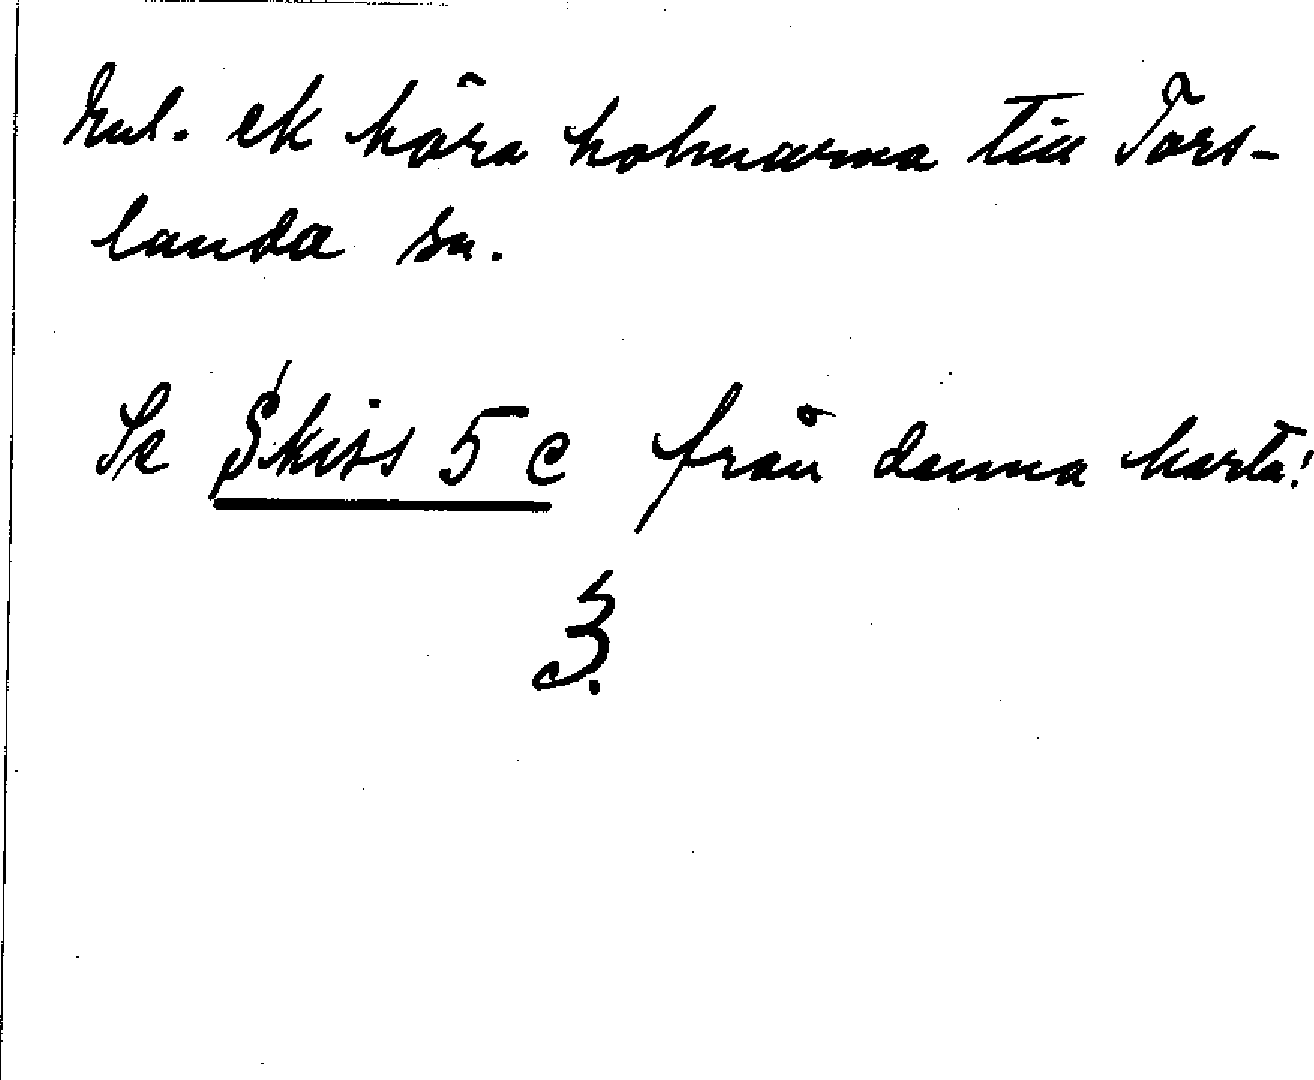 Enl. ek höra holmarna till Tors-
landa sn.
Se Skiss 5 c från denna karta!
3.